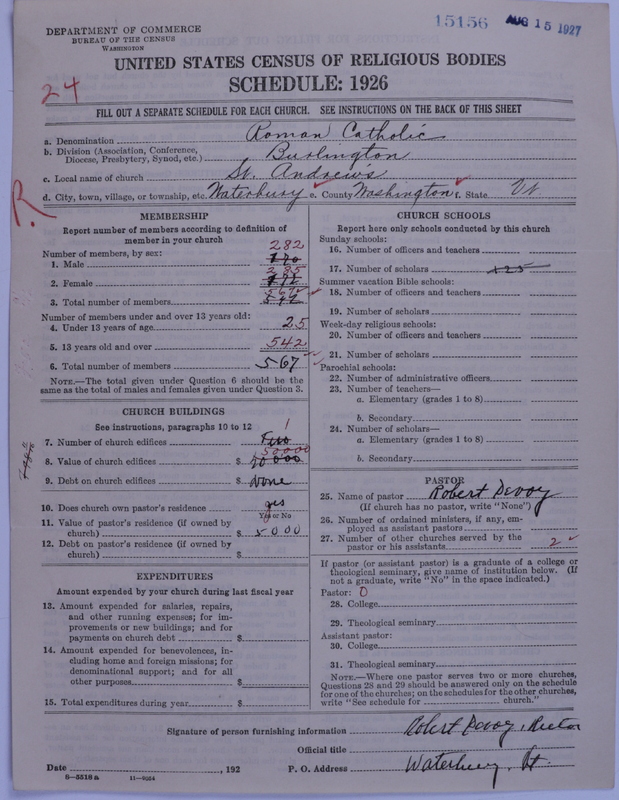 15156 AUG 15 1927
DEPARTMENT OF COMMERCE
BUREAU OF THE CENSUS
WASHINGTON
UNITED STATES CENSUS OF RELIGIOUS BODIES
SCHEDULE: 1926
24
FILL OUT A SEPARATE SCHEDULE FOR EACH CHURCH. SEE INSTRUCTIONS ON THE BACK OF THIS SHEET
a. Denomination Roman Catholic
b. Division (Association, Conference, Diocese, Presbytery, Synod, etc.) Burlington
c. Local name of church St. Andrew's
d. City, town, village, or township, etc. Waterbury e. County Washington f. State Vt
R
MEMBERSHIP
Report number of members according to definition of
member in your church
Number of members, by sex:
282
1. Male
285
2. Female
567
3. Total number of members
Number of members under and over 13 years old:
4. Under 13 years of age 25
5. 13 years old and over 542
6. Total number of members 567
NOTE.—The total given under Question 6 should be the
same as the total of males and females given under Question 3.
CHURCH BUILDINGS
See instructions, paragraphs 10 to 12
1
7. Number of church edifices Two
50000
8. Value of church edifices $
9. Debt on church edifices $ None
10. Does church own pastor's residence yes
Yes or No
11. Value of pastor's residence (if owned by
church) $ 5000
12. Debt on pastor's residence (if owned by
church) $
EXPENDITURES
Amount expended by your church during last fiscal year
13. Amount expended for salaries, repairs,
and other running expenses; for im-
provements or new buildings; and for
payments on church debt $
14. Amount expended for benevolences, in-
cluding home and foreign missions; for
denominational support; and for all
other purposes $
15. Total expenditures during year $
CHURCH SCHOOLS
Report here only schools conducted by this church
Sunday schools:
16. Number of officers and teachers
17. Number of scholars 125
Summer vacation Bible schools:
18. Number of officers and teachers
19. Number of scholars
Week-day religious schools:
20. Number of officers and teachers
21. Number of scholars
Parochial schools:
22. Number of administrative officers
23. Number of teachers—
a. Elementary (grades 1 to 8)
b. Secondary
24. Number of scholars—
a. Elementary (grades 1 to 8)
b. Secondary
PASTOR
25. Name of pastor Robert Devoy
(If church has no pastor, write "None")
26. Number of ordained ministers, if any, em-
ployed as assistant pastors
27. Number of other churches served by the
pastor or his assistants 2
If pastor (or assistant pastor) is a graduate of a college or
theological seminary, give name of institution below. (If
not a graduate, write "No" in the space indicated.)
Pastor: 0
28. College
29. Theological seminary
Assistant pastor:
30. College
31. Theological seminary
NOTE.—Where one pastor serves two or more churches,
Questions 28 and 29 should be answered only on the schedule
for one of the churches; on the schedules for the other churches,
write "See schedule for church."
Signature of person furnishing information Robert Devoy, Rector
Official title
Date , 192 P. O. Address Waterbury, Vt.
8-5518a 11-9254